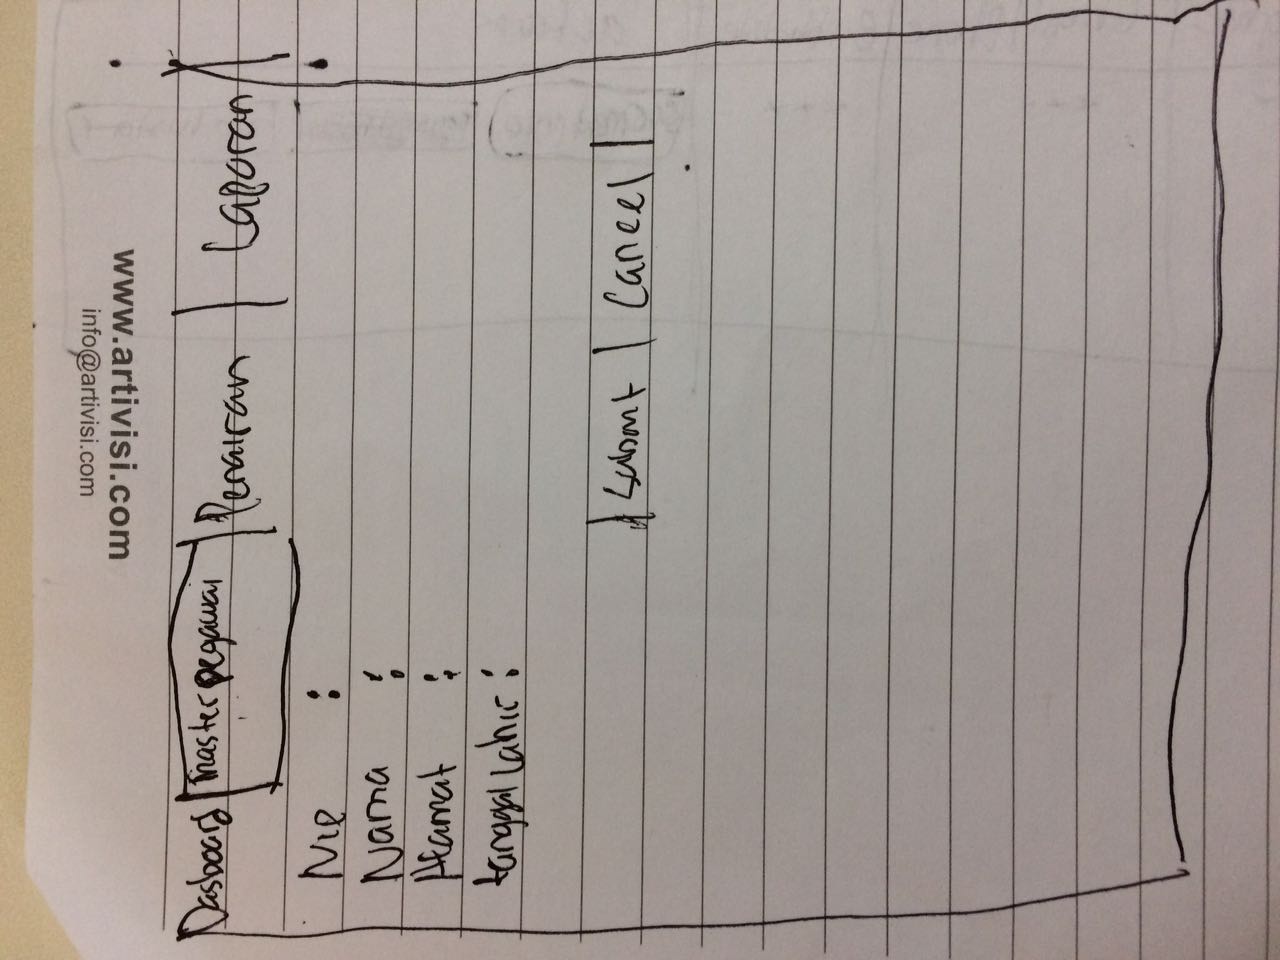 www.artivisi.com
info@artivisi.com
Dasboard | master pegawai | Penairan | Laporan
NIP :
Nama :
Alamat :
tanggal Lahir :
| Submt | Cancel |